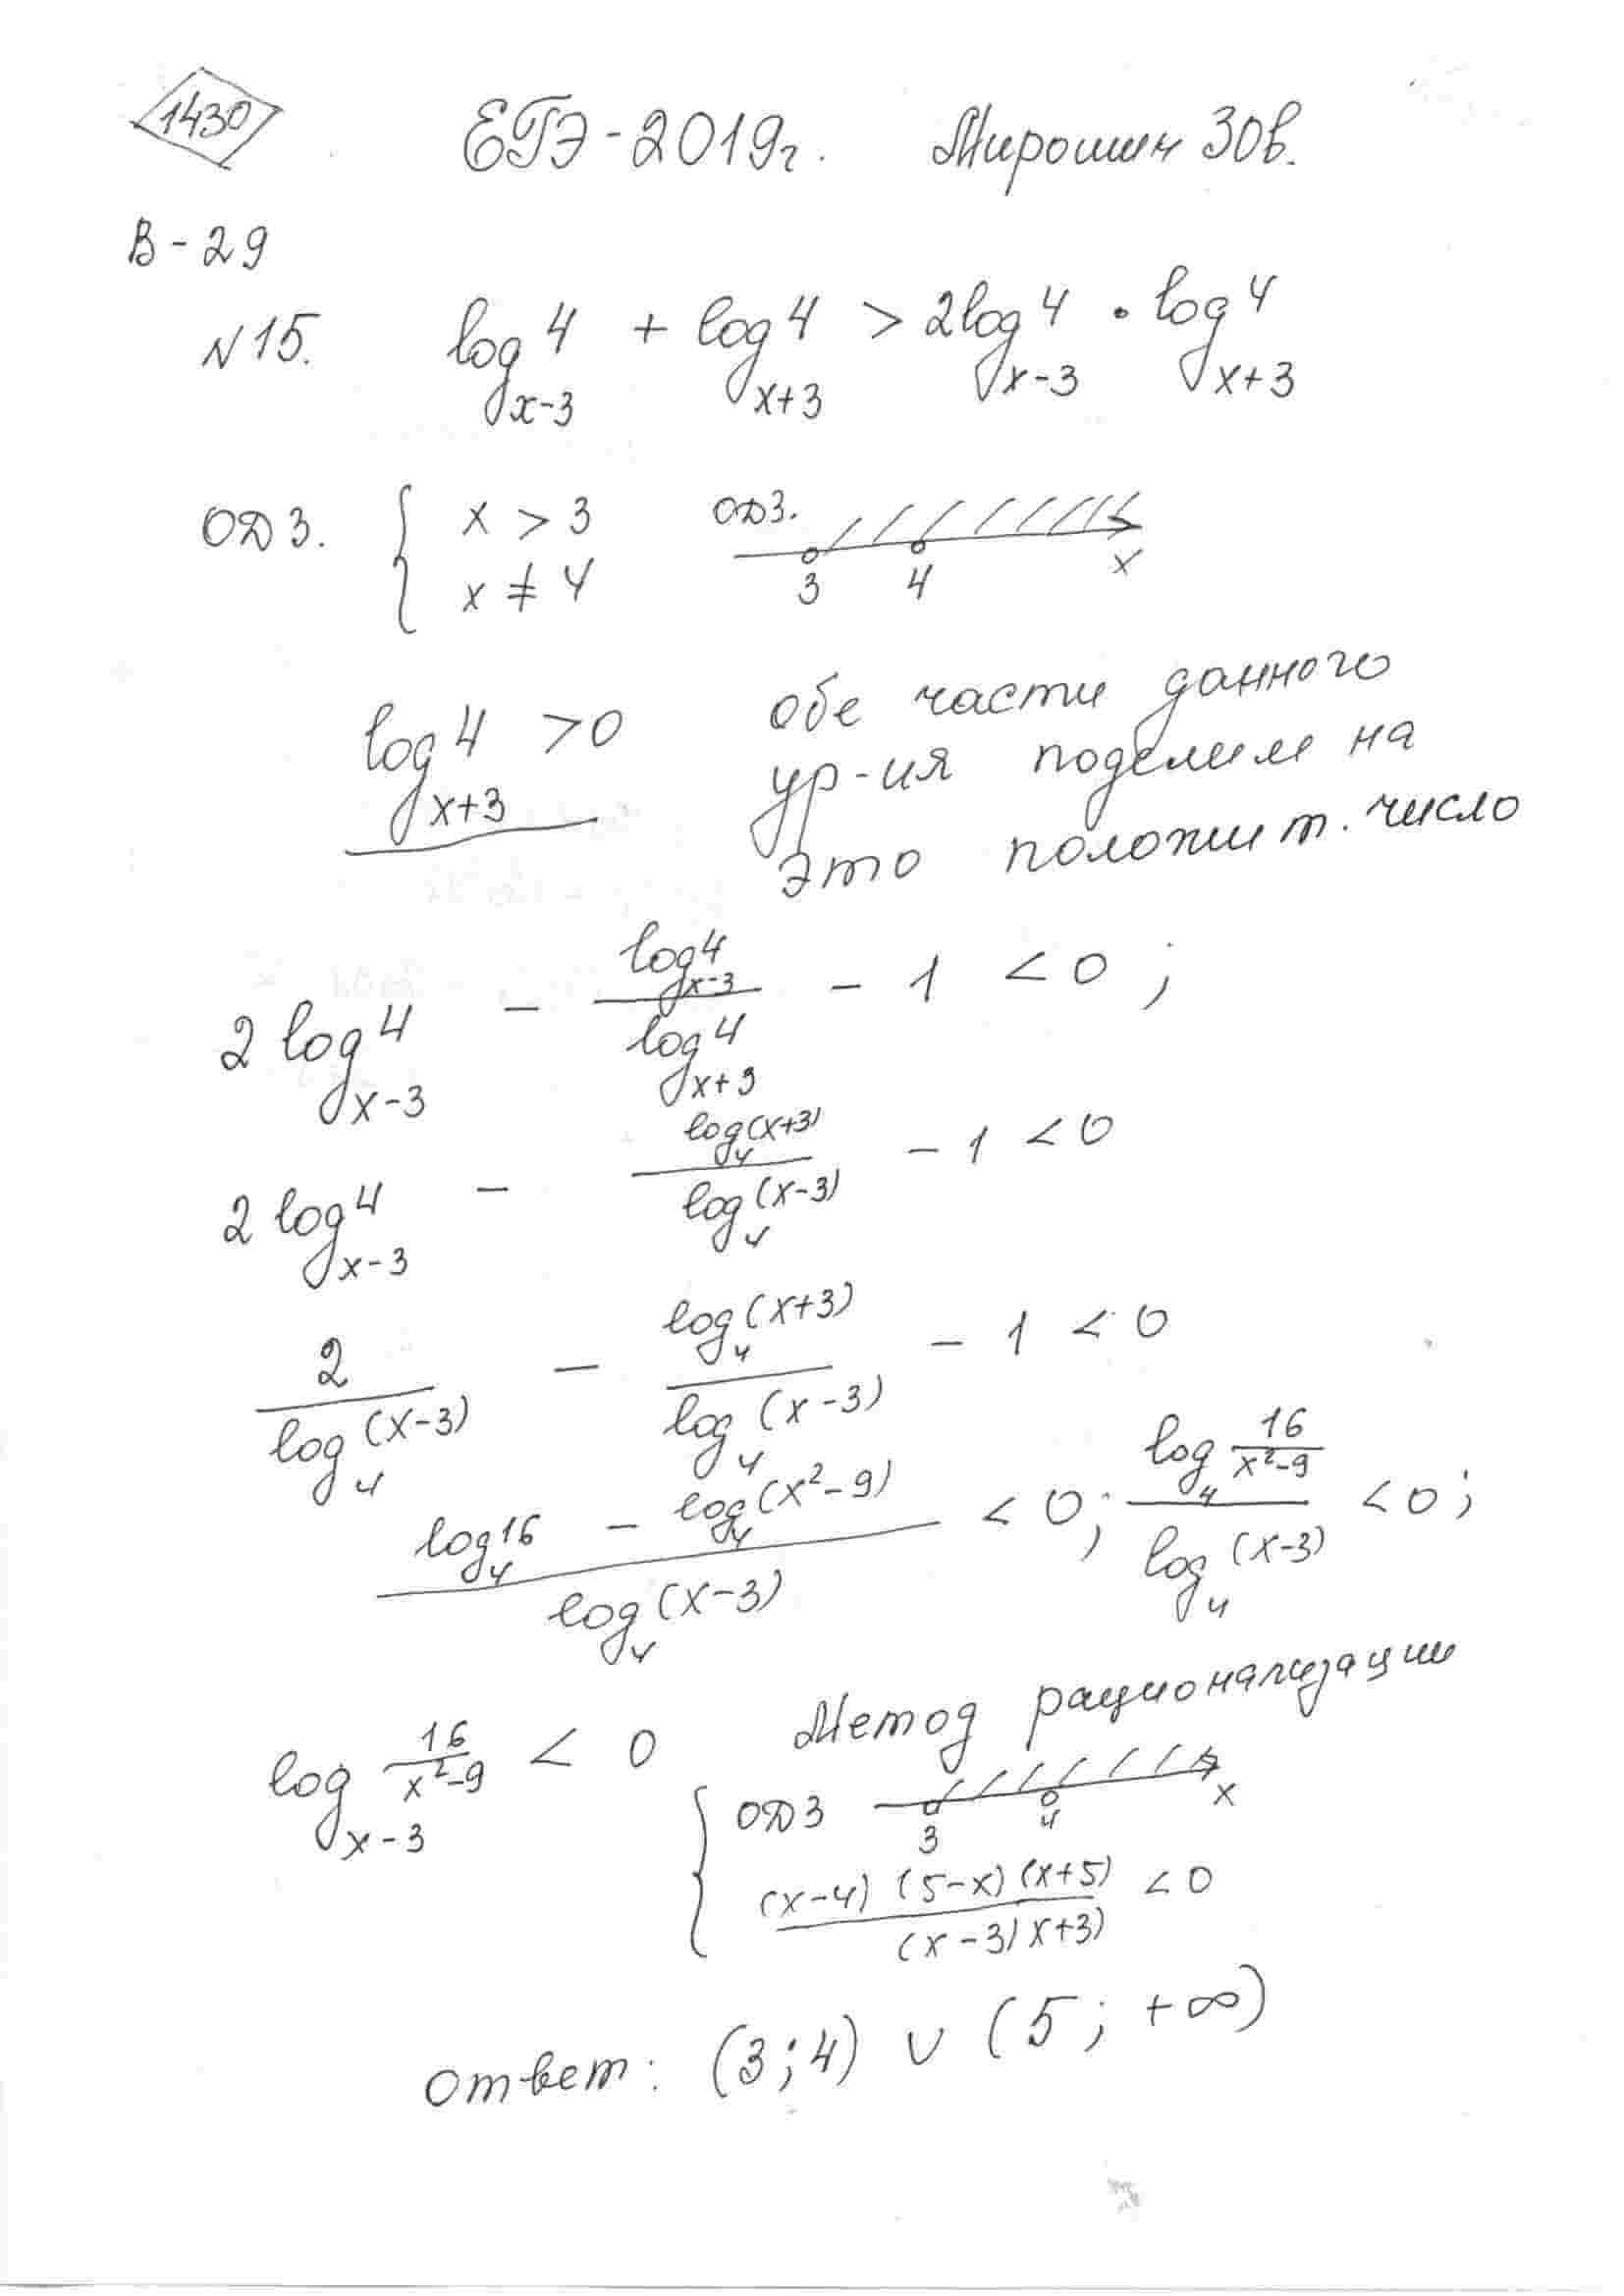 1430 ЕГЭ-2019г. Мирошин 30в.
В-29
N15. log_{x-3} 4 + log_{x+3} 4 > 2log_{x-3} 4 • log_{x+3} 4
ОДЗ. { x > 3 ОДЗ.
x ≠ 4 3 4 x
log_{x+3} 4 > 0 обе части данного
ур-ия поделим на
это положит. число
2 log_{x-3} 4 - \frac{log_{x-3} 4}{log_{x+3} 4} - 1 < 0 ;
2 log_{x-3} 4 - \frac{log_4 (x+3)}{log_4 (x-3)} - 1 < 0
\frac{2}{log_4 (x-3)} - \frac{log_4 (x+3)}{log_4 (x-3)} - 1 < 0
\frac{log_4 16 - log_4 (x^2-9)}{log_4 (x-3)} < 0; \frac{log_4 \frac{16}{x^2-9}}{log_4 (x-3)} < 0;
log_{x-3} \frac{16}{x^2-9} < 0 Метод рационализации
{ ОДЗ 3 4 x
\frac{(x-4) (5-x) (x+5)}{(x-3) x+3)} < 0
Ответ: (3;4) ∪ (5; +∞)